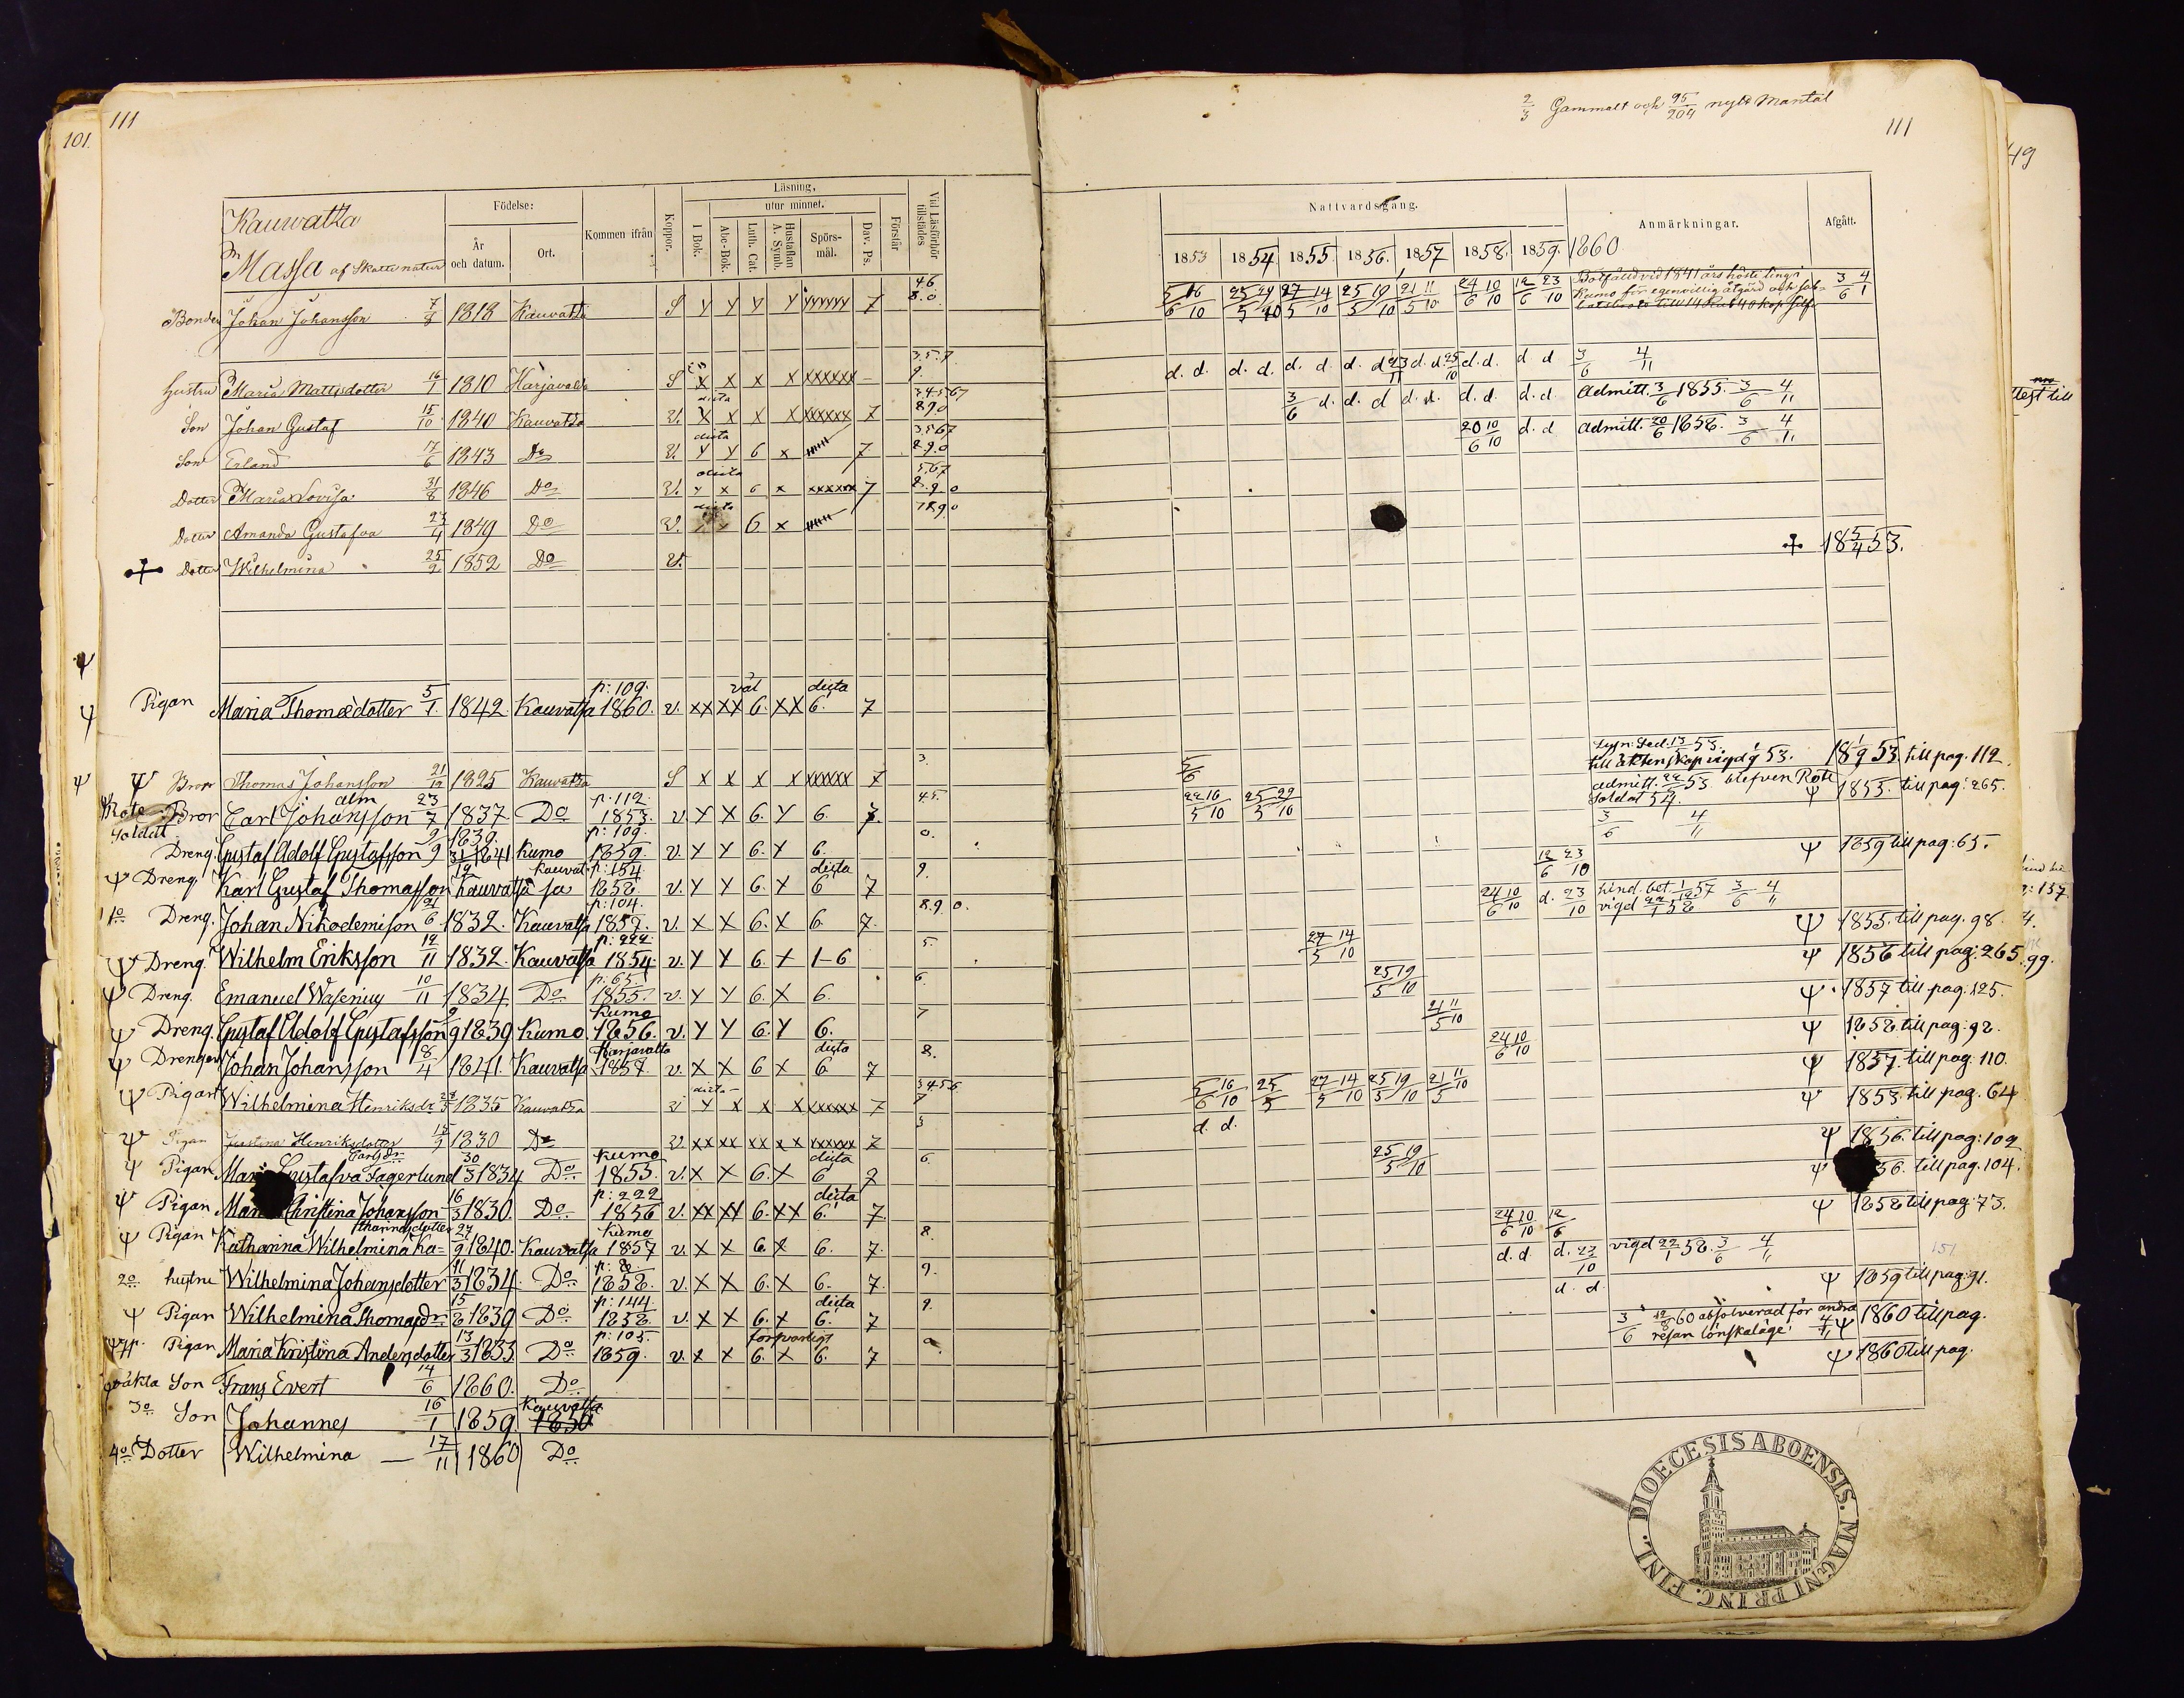 101.
111
Kauvatsa
Massa af Skatte natur
Födelse:
År och datum.
Ort.
Kommen ifrån
Koppor.
Läsning,
utur minnet.
I Bok.
Abc-Bok.
Luth. Cat.
Hustaflan A. Symb.
Spörs-mål.
Dav. Ps.
Förstår
Vid Läsförhör tillstädes
Bonden Johan Johansson 7/8 1818 Kauvatsa S y y y y yyyyyy 7 4.6 8.0
Hustru Maria Mattsdotter 16/1 1810 Harjavalda S x x x x xxxxxx – 3.5.7 9.
Son Johan Gustaf 15/10 1840 Kauvatsa V. x x x x xxxxxx 7 3.4.5.6.7 8.9.0
Son Erland 17/6 1843 Do V. y y 6 x 7 3.5.6.7 8.9.0
Dotter Maria Lovisa 31/8 1846 Do V. y x 6 x xxxxxx 7 5.6.7 8.9.0
Dotter Amanda Gustafva 23/4 1849 Do V. 6 x 7.8.9.0
Dotter Wilhelmina 25/9 1852 Do V.
Pigan Maria Thomædotter 5/1 1842. Kauvatsa p: 109. 1860. v. xx xx 6. xx 6. 7 väl dicta
Ψ Bror Thomas Johansson 21/12 1825 Kauvatsa S x x x x xxxxxx 7 3.
Rote Soldat Bror Carl Johansson alm 23/7 1837. Do p: 112. 1853. v. y x 6. y 6. 7. 4.5.
Dreng. Gustaf Adolf Gustafsson 9/9 1839. Kumo p: 109. 1859. v. y y 6. y 6. 0.
Ψ Dreng. Karl Gustaf Thomasson 31/12 1841 Kauvatsa p: 154. 1858 v. y y 6. x 6 7 dicta 9.
1o Dreng. Johan Nikodemison 21/6 1832. Kauvatsa p: 104. 1857. v. x x 6. x 6 7. 8.9.0.
Ψ Dreng. Wilhelm Eriksson 12/11 1832. Kauvatsa p: 222 1854. v. y y 6. x 1–6 5.
Ψ Dreng. Emanuel Wasenius 10/11 1834. Do p. 65. 1855. v. y y 6. x 6. 6.
Ψ Dreng. Gustaf Adolf Gustafsson 9/9 1839 Kumo Kumo 1856. v. y y 6. y 6. 7
Ψ Drengen Johan Johansson 8/4 1841. Kauvatsa Harjavalta 1857. v. x x 6 x 6 7 dicta 8.
Ψ Pigan Wilhelmina Henriksdr 1835 Kauvatsa v y x x x xxxxxx 7 3.4.5.6 7
Ψ Pigan Justina Henriksdotter 15/9 1830 Do V. xx xx xx xx xxxxxx 7 3
Ψ Pigan Maria Gustafva Fagerlund Carlsdr 30/3 1834 Do Kumo 1855. v. x x 6. x 6 7 dicta 6.
Ψ Pigan Maria Christina Johansson 16/3 1830. Do p: 222 1856 v. xx xx 6. xx 6. 7. dicta
Ψ Pigan Katharina Wilhelmina Ka-tharinasdotter 27/9 1840. Kauvatsa Kumo 1857 v. x x 6. x 6. 7. 8.
2o hustru Wilhelmina Johansdotter 11/3 1834. Do p: 8. 1858. v. x x 6. x 6. 7. 9.
Ψ Pigan Wilhelmina Thomasdr 15/8 1839 Do p: 144 1858. v. x x 6. x 6. 7 dicta 9.
Pigan Maria Kristina Andersdotter 13/3 1833 Do p: 105. 1859. v. x x 6. x 6. 7 försvarligt
oäkta Son Frans Evert 14/6 1860. Do
3o Son Johannes 16/1 1859. Kauvatsa 1850
4o Dotter Wilhelmina — 17/11 1860 Do
2/3 Gammalt och 95/204 nytt Mantal
111
49
Nattvardsgång.
Anmärkningar.
Afgått.
1853 1854. 1855. 1856. 1857 1858. 1859. 1860
5/6 16/10 25/5 29/10 27/5 14/10 25/5 19/10 21/5 11/10 24/6 10/10 12/6 23/10 Bötfälld vid 1841 års höste ting i Kumo för egenvillig åtgärd och 3/6 4/11
d. d. d. d. d. d. d. d. d. d. d. d. 3/6 4/11
3/6 d. d. d d. d. d. d. d. d. admitt. 3/6 1855. 3/6 4/11
20/6 10/10 d. d admitt. 20/6 1858. 3/6 4/11
18 5/4 53.
5/6 Lysn: Sed. 13/5 53. till Äktenskap vigd 53. 18 1/9 53. till pag. 112.
22/5 16/10 25/5 29/10 admitt. 22/5 53 blefven Rote Soldat 54. Ψ 1855. till pag: 265.
3/6 4/11
12/6 23/10 Ψ 1859 till pag: 65.
24/6 10/10 d. 23/10 hind. bet. 1/12 57 vigd 22/1 58 3/6 4/11
27/5 14/10 Ψ 1855. till pag. 98.
25/5 19/10 Ψ 1856 till pag: 265
21/5 11/10 Ψ 1857 till pag. 125.
24/6 10/10 Ψ 1858. till pag: 92.
5/6 16/10 25/5 27/5 14/10 25/5 19/10 21/5 11/10 Ψ 1857. till pag. 110.
d. d. Ψ 1853. till pag. 64
25/5 19/10 Ψ 1856. till pag: 109
Ψ 56. till pag. 104.
24/6 10/10 12/6 Ψ 1858 till pag: 73.
d. d d. 23/10 vigd 22/1 58. 3/6 4/11
d. d Ψ 1859 till pag: 91.
3/6 12/8 60 absolverad för andra resan lönskaläge. 4/11 Ψ 1860 till pag.
Ψ 1860 till pag.
DIOECESIS ABOENSIS. MAGNI PRINC. FINL.